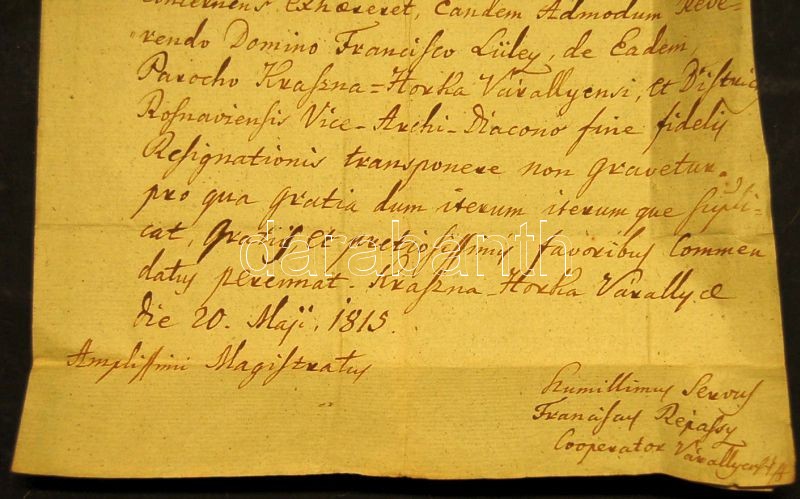 concernens exhæreret, Eandem Admodum Reve-
rendo Domino Francisco Lüley, de Eadem,
Parocho Kraszna-Horka Várallyensi, et Distric
Rosnaviensis Vice-Archi-Diacono fine fidelis
Resignationis transponere non gravetur.
pro qua gratia dum iterum iterum que supli-
cat, gratiis et pretiosissimis favoribus Commen
datus perennat. Kraszna-Horka Várallyæ
die 20. Maji, 1815.
Amplissimi Magistratus
humillimus Servus
Franciscus Répassy
Cooperator Várallyensis
darabanth